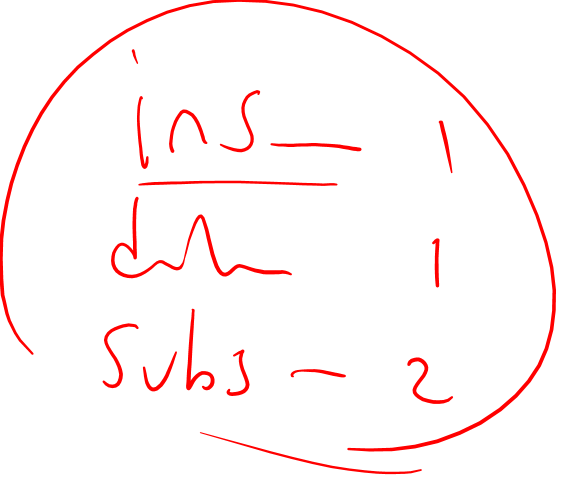 ins — 1
del — 1
subs — 2